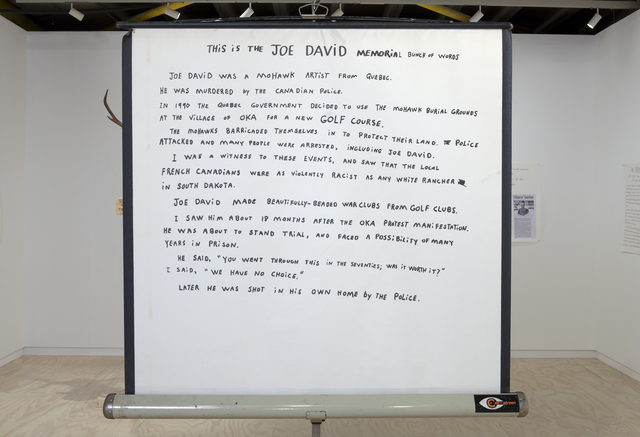 THIS IS THE JOE DAVID MEMORIAL BUNCH OF WORDS
JOE DAVID WAS A MOHAWK ARTIST FROM QUEBEC.
HE WAS MURDERED BY THE CANADIAN POLICE.
IN 1990 THE QUEBEC GOVERNMENT DECIDED TO USE THE MOHAWK BURIAL GROUNDS
AT THE VILLAGE OF OKA FOR A NEW GOLF COURSE.
THE MOHAWKS BARRICADED THEMSELVES IN TO PROTECT THEIR LAND. POLICE
ATTACKED AND MANY PEOPLE WERE ARRESTED, INCLUDING JOE DAVID.
I WAS A WITNESS TO THESE EVENTS, AND SAW THAT THE LOCAL
FRENCH CANADIANS WERE AS VIOLENTLY RACIST AS ANY WHITE RANCHER
IN SOUTH DAKOTA.
JOE DAVID MADE BEAUTIFULLY-BEADED WAR CLUBS FROM GOLF CLUBS.
I SAW HIM ABOUT 19 MONTHS AFTER THE OKA PROTEST MANIFESTATION.
HE WAS ABOUT TO STAND TRIAL, AND FACED A POSSIBILITY OF MANY
YEARS IN PRISON.
HE SAID, "YOU WENT THROUGH THIS IN THE SEVENTIES; WAS IT WORTH IT?"
I SAID, "WE HAVE NO CHOICE."
LATER HE WAS SHOT IN HIS OWN HOME BY THE POLICE.